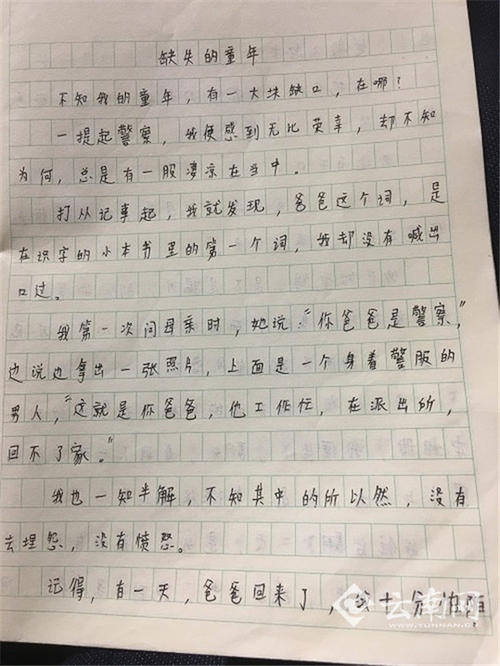 缺失的童年
不知我的童年，有一大块缺口，在哪？
一提起警察，我便感到无比荣幸，却不知
为何，总是有一股凄凉在当中。
打从记事起，我就发现，爸爸这个词，是
在识字的小本书里的第一个词，我却没有喊出
口过。
我第一次问母亲时，她说：“你爸爸是警察，”
边说边拿出一张照片，上面是一个身着警服的
男人，“这就是你爸爸，他工作忙，在派出所，
回不了家。”
我也一知半解，不知其中的所以然，没有
去埋怨，没有愤怒。
记得，有一天，爸爸回来了，
云南网
WWW.YUNNAN.CN